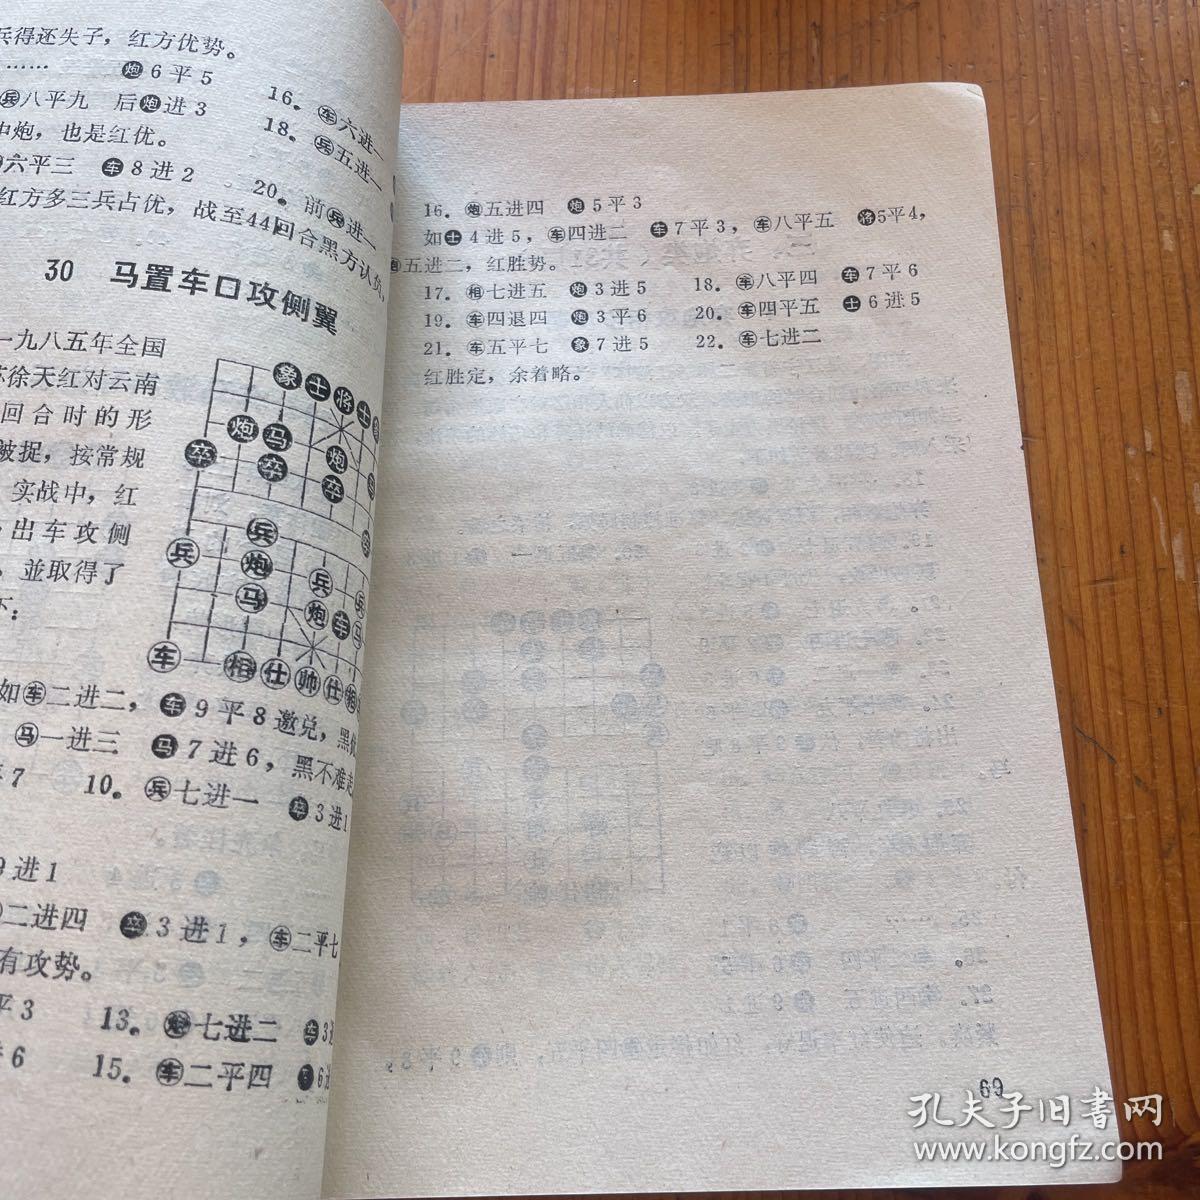 兵得还失子，红方优势。
…… 炮6平5
兵八平九 后炮进3
中炮，也是红优。
六平三 车8进2
红方多三兵占优，战至44回合黑方认负。
16. 车六进一
18. 兵五进一
20. 前兵进一
30 马置车口攻侧翼
一九八五年全国
苏徐天红对云南
回合时的形
被捉，按常规
实战中，红
出车攻侧
，並取得了
象 士 将 士 象
炮 马
炮
卒 卒 卒
兵
兵 炮 兵 兵
马 炮 车 马
车 相 仕 帅 仕
如车二进二，车9平8邀兑，黑
马一进三 马7进6，黑不难走
平7 10. 兵七进一 卒3进1
9进1
二进四 卒3进1，车二平七
有攻势。
平3 13. 炮七进二 卒3
进6 15. 车二平四
16. 炮五进四 炮5平3
如士4进5，车四进二 车7平3，车八平五 将5平4，
炮五进二，红胜势。
17. 相七进五 炮3进5 18. 车八平四 车7平6
19. 车四退四 炮3平6 20. 车四平五 士6进5
21. 车五平七 象7进5 22. 车七进二
红胜定，余着略。
69
孔夫子旧书网
www.kongfz.com